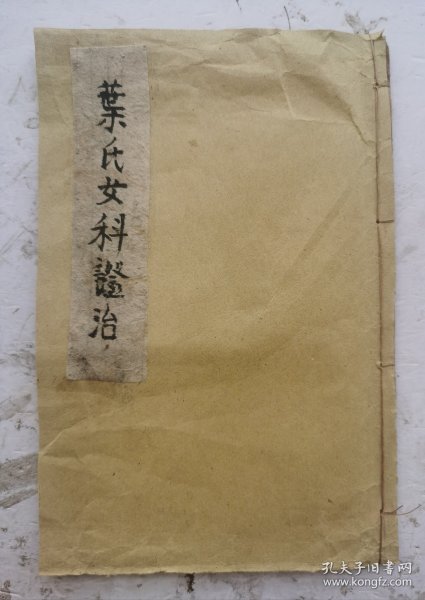 葉氏女科證治
孔夫子旧书网
www.kongfz.com